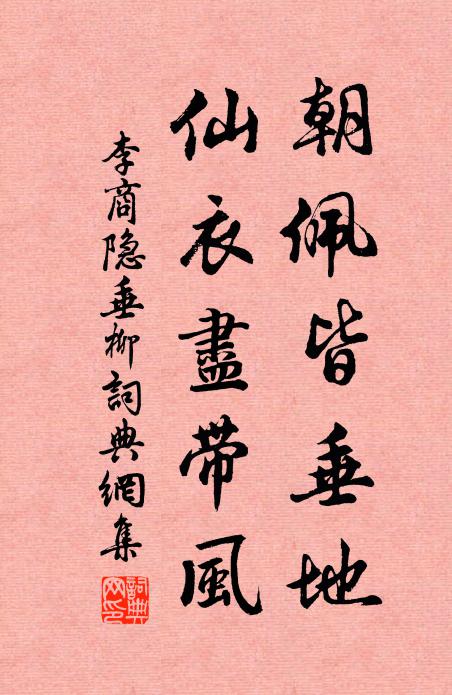 朝佩皆垂地
仙衣盡帶風
李商隐垂柳詞典網集
詞典網印